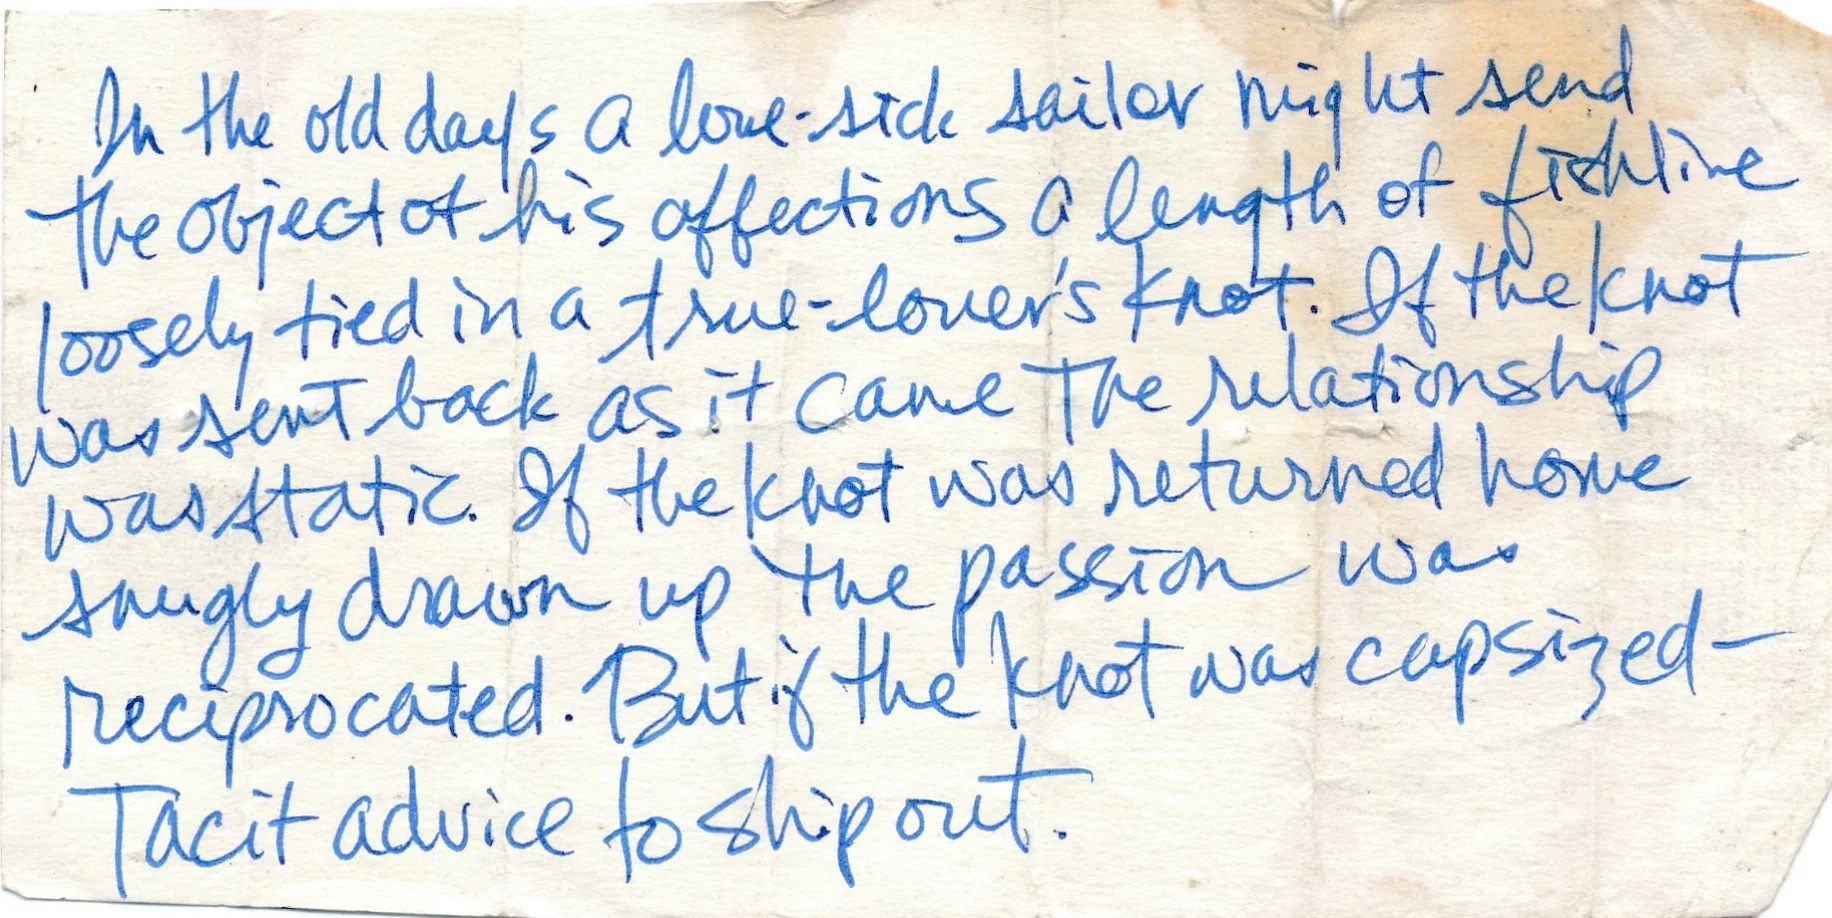 In the old days a love-sick sailor might send
the object of his affections a length of fishline
loosely tied in a true-lover's knot. If the knot
was sent back as it came The relationship
was static. If the knot was returned home
snugly drawn up the passion was
reciprocated. But if the knot was capsized—
Tacit advice to ship out.